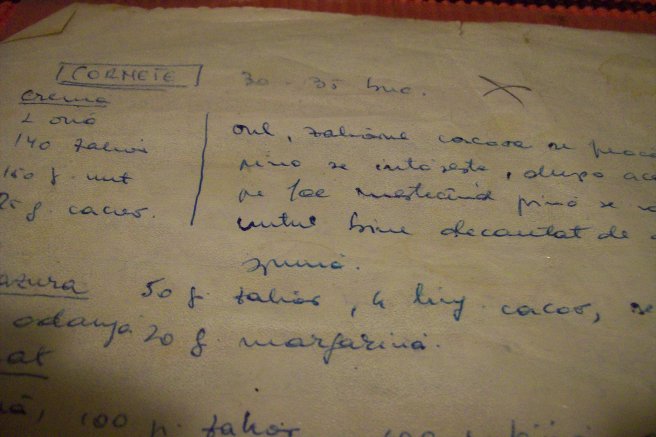 CORNETE 30 - 35 buc.
crema
2 ouă
140 zahăr
150 g. unt
25 g. cacao.
oul, zahărul cacaoa se
pînă se , după
pe foc mestecînd pînă se
untul bine decantat de
spumă.
azura 50 g. zahăr, 4 ling. cacao, se
20 g. margarină.
at
100 g. zahăr 100